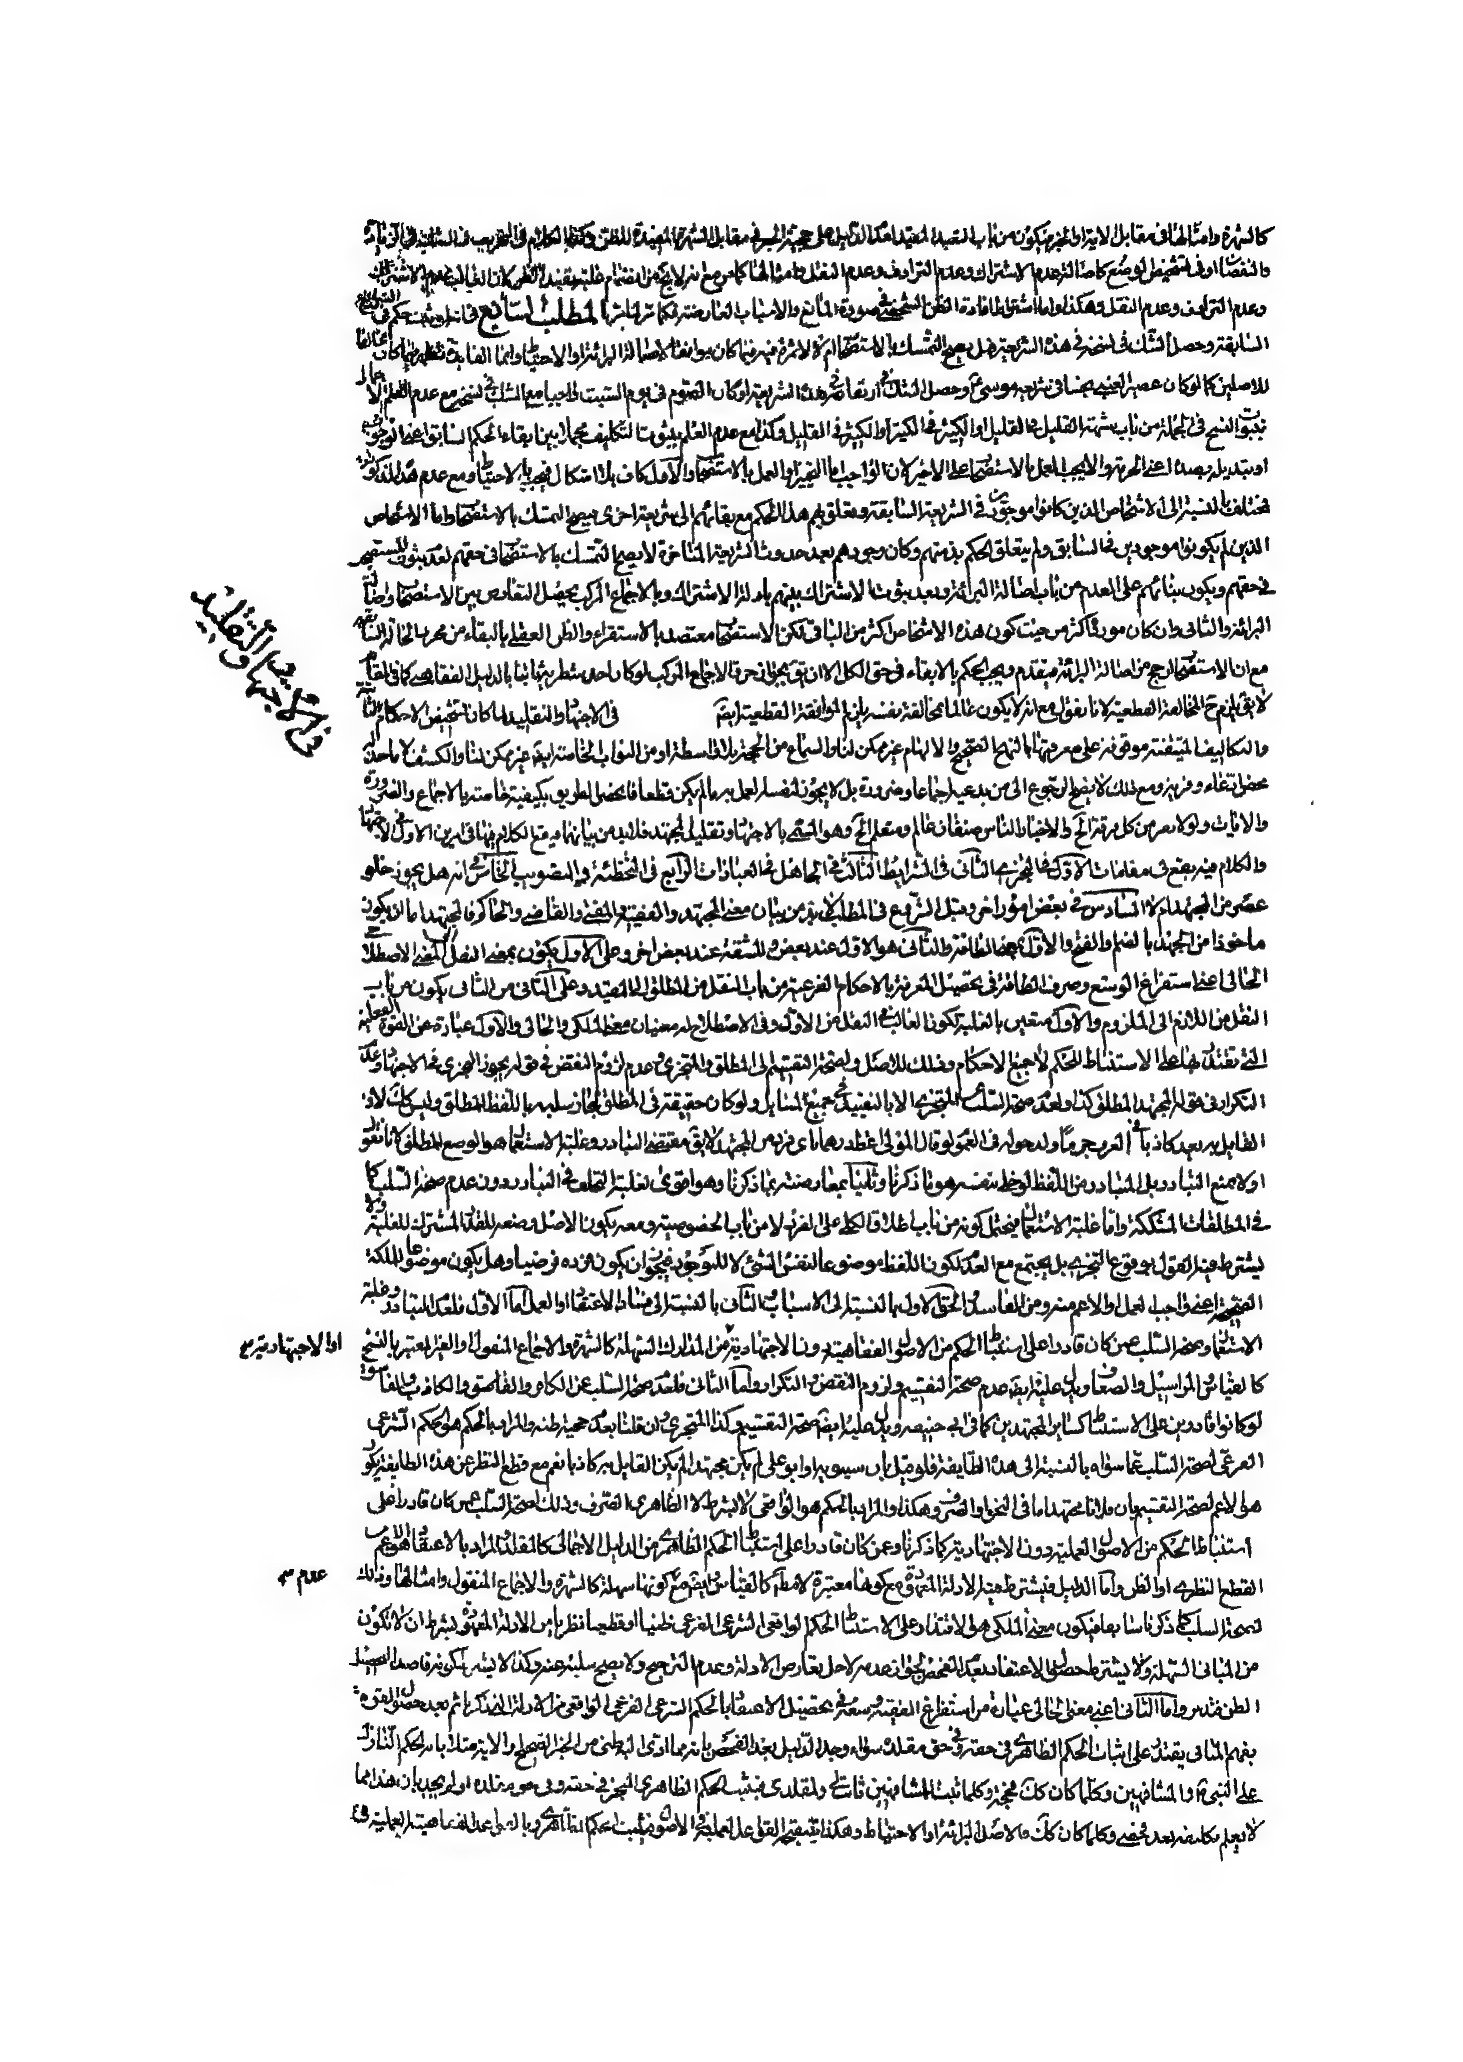 كالشهرة وامثالها في مقابل الاية او الخبر فيكون من باب التعبد المقيد لعدم الدليل على حجية الخبر في مقابل الشهرة المفيدة للظن وكذا الكلام في
والنقصان او في تشخيص الوضع كاصالة عدم الاشتراك وعدم الترادف وعدم النقل وامثالها كما مر مع انه لا بد من انضمام غلبة مفيدة للظن لان الغالب عدم الاشتراك
وعدم الترادف وعدم النقل وهكذا واما اشتراط افادة الظن الشخصي في صورة المانع والاسباب المعارضة فكما مر المطلب السابع في انه لو ثبت حكم في الشرايع
السابقة وحصل الشك في نسخه في هذه الشريعة هل يصح التمسك بالاستصحاب ام لا ولا ثمرة فيه فيما كان موافقا لاصالة البرائة او الاحتياط وانما الفايدة تظهر فيما كان مخالفا
للاصلين كما لو كان عصير العنبي نجسا في شريعة موسى ع وحصل الشك في ارتفاعه في هذه الشريعة او كان الصوم في يوم السبت واجبا مع الشك في نسخه مع عدم العلم
بثبوت النسخ في الجملة من باب شبهة القليل في القليل او الكثير في الكثير او الكثير في القليل وكذا مع عدم العلم بثبوت التكليف مجملا بين ابقاء الحكم السابق اعني الوجوب
او تبديله بضده اعني الحرمة والا يجب العمل بالاستصحاب على الاخير لان الواجب اما التخيير او العمل بالاستصحاب والاول كاف بلا اشكال فيجب الاحتياط ومع عدم هذا المذكور
مختلف بالنسبة الى الاشخاص الذين كانوا موجودين في الشريعة السابقة وتعلق بهم هذا الحكم مع بقائهم الى شريعة اخرى فيصح التمسك بالاستصحاب واما الاشخاص
الذين لم يكونوا موجودين في السابق ولم يتعلق الحكم بذمتهم وكان وجودهم بعد حدوث الشريعة المتاخرة لا يصح التمسك بالاستصحاب في حقهم لعدم ثبوت المستصحب
في حقهم ويكون بنائهم على العدم من باب اصالة البرائة وبعد ثبوت الاشتراك بينهم بادلة الاشتراك وبالاجماع المركب يحصل التعارض بين الاستصحاب واصالة
البرائة والثاني وان كان موردا اكثر من حيث كون هذه الاشخاص اكثر من الباقي لكن الاستصحاب معتضد بالاستقراء والظن العقلي بالبقاء من مجرد الحالة السابقة
مع ان الاستصحاب ارجح من اصالة البرائة فيقدم ويجب الحكم بالابقاء في حق الكل الا ان يق بجواز خرق الاجماع المركب لو كان احد شطريه ثابتا بالدليل الفقاهي كما في المقام
لا يق يلزم ح المخالفة القطعية لانا نقول مع انه لا يكون عالما بمخالفة نفسه يلزم الموافقة القطعية ايضا في الاجتهاد والتقليد لما كان تشخيص الاحكام
والتكاليف المتيقنة موقوفة على معرفتها بالنهج الصحيح والالهام غير ممكن لنا والسماع من الحجة بلا واسطة او من النواب الخاصة ايضا غير ممكن لنا والكشف لاحد
محض ادعاء وفرية ومع ذلك لا يصح الرجوع الى من يدعيه اجماعا وضرورة بل لا يجوز لنفسه العمل به ما لم يكن قطعا فانحصر الطريق بكيفية خاصة بالاجماع والضرورة
والايات ولولا نفر من كل فرقة الخ والاخبار الناس صنفان عالم ومتعلم الخ وهو المسمى بالاجتهاد وتقليد المجتهد فلا بد من بيانهما فيقع الكلام فيها في امرين الاول في الاجتهاد
والكلام فيه يقع في مقامات الاول في التجزي الثاني في الشرايط الثالث في الجاهل في العبادات الرابع في التخطئة والتصويب الخامس انه هل يجوز خلو
عصر من المجتهد ام لا السادس في بعض امور اخر وقبل الشروع في المطلب لا بد من بيان معنى المجتهد والفقيه والمفتي والقاضي والحاكم فالمجتهد اما ان يكون
ماخوذا من الجهد بالضم والفتح والاول بمعنى الطاقة والثاني هو الاول عند بعض وللمشقة عند بعض اخر وعلى الاول يكون بمعنى النقل الى المعنى الاصطلاحي
الحالي اعني استفراغ الوسع وصرف الطاقة في تحصيل المعرفة بالاحكام الفرعية من باب النقل من المطلق الى المقيد وعلى الثاني من الثاني يكون من باب
النقل من اللازم الى الملزوم والاول متعين بالغلبة لكون الغالب في النقل من الاول وفي الاصطلاح له معنيان معنى الملكي والحالي والاول عبارة عن القوة الفعلية
التي يقتدر بها على الاستنباط للحكم لا جميع الاحكام وذلك للاصل ولصحة التقسيم الى المطلق والمتجزي وعدم لزوم النقض في قوله يجوز التجزي في الاجتهاد وعدم
التكرار في قوله المجتهد المطلق كذا ولعدم صحة السلب عن المتجزي الا بالتقييد في جميع المسايل ولو كان حقيقة في المطلق لجاز سلبه باللفظ المطلق وليس كك لان
القايل به يعد كاذبا في العرف جزما ولدخوله في العموم لو قال المولى اعط درهما لاي فرد من المجتهد لا يق مقتضى التبادر وغلبة الاستعمال هو الوضع للمطلق لانا نقول
اولا بمنع التبادر بل المتبادر من اللفظ لو خلي بنفسه هو ما ذكرنا وثانيا بمعارضته بما ذكرنا وهو اقوى لغلبة التخلف في التبادر دون عدم صحة السلب كما
في المطلقات المشككة واما غلبة الاستعمال فيحتمل كونه من باب اطلاق الكلي على الفرد لا من باب الخصوصية ومعه يكون الاصل وضعه للقدر المشترك للغلبة ولا
يشترط فيه القول بوقوع التجزي بل يجتمع مع العدم لكون اللفظ موضوعا لنفس الشئ لا للموجود فيجوز ان يكون فرده فرضيا وهل يكون موضوعا للملكة
الصحيحة اعني واجب العمل او الاعم منه ومن الفاسد والحق الاول بالنسبة الى الاسباب والثاني بالنسبة الى مناط الاعتقاد او العمل اما الاول فلعدم التبادر وغلبة
الاستعمال وصحة السلب عمن كان قادرا على استنباط الحكم من الاصول الفقاهية دون الاجتهادية من المدارك السهلة كالشهرة والاجماع المنقول والغير المعتبر بالنسخ
او الاجتهادية
كالقياس والمراسيل والضعاف ويدل عليه ايضا عدم صحة التقسيم ولزوم النقض والتكرار واما الثاني فلعدم صحة السلب عن الكافر والفاسق والكاذب
لو كانوا قادرين على الاستنباط كساير المجتهدين كما في ابي حنيفة ويدل عليه ايضا صحة التقسيم وكذا المتجزي وان قلنا بعدم حجية ظنه والمراد بالحكم هو الحكم الشرعي
الفرعي لصحة السلب عما سواه بالنسبة الى هذه الطايفة فلو قيل بان سيبويه او ابو علي لم يكن مجتهدا لم يكن القايل به كاذبا نعم مع قطع النظر عن هذه الطايفة يكون
هو الاعم لصحة التقسيم بان فلانا مجتهد اما في النحو او الصرف وهكذا والمراد بالحكم هو الواقعي لا بشرط لا الظاهري الصرف وذلك لصحة السلب عمن كان قادرا على
استنباط الحكم من الاصول العملية دون الاجتهادية كما ذكرنا وعمن كان قادرا على استنباط الحكم الظاهري من الدليل الاجمالي كالمقلد والمراد بالاعتقاد هو الاعم من
القطع النظري او الظن واما الدليل فيشترط فيه الادلة المعهودة مع كونها معتبرة لا مط كالقياس ايضا مع كونها سهلة كالشهرة والاجماع المنقول وامثالها وذلك
عدم
لصحة السلب كما ذكرنا سابقا فيكون معنى الملكي هو الاقتدار على الاستنباط الحكم الواقعي الشرعي الفرعي ظنيا او قطعيا نظريا من الادلة المعهودة بشرط ان لا تكون
من المباني السهلة ولا يشترط حصول الاعتقاد بعد الفحص لجواز عدمه لاجل تعارض الادلة وعدم الترجيح ولا يصح سلبه عنه وكذا لا يشترط كونه قاصدا لتحصيل
الظن فتدبر واما الثاني اعني معنى الحالي عبارة من استفراغ الفقيه وسعه في تحصيل الاعتقاد بالحكم الشرعي الفرعي الواقعي من الادلة المذكورة ثم بعد حصول القوة
بفهم الثاني يقتدر على اثبات الحكم الظاهري في حقه وفي حق مقلده سواء وجد الدليل بعد الفحص بان هذا ما ادى اليه ظني من الخبر الصحيح والاية مثلا بانه الحكم النازل
على النبي ص والمشافهين وكلما كان كك فحجة وكلما ثبت للمشافهين ثابت لي ولمقلدي فيثبت الحكم الظاهري المنجز في حقه وفي حق مقلده او لم يجد بان هذا مما
لا يعلم تكليفه بعد فحصي وكلما كان كك فالاصل البرائة او الاحتياط وهكذا
في الامر
في الاجتهاد والتقليد